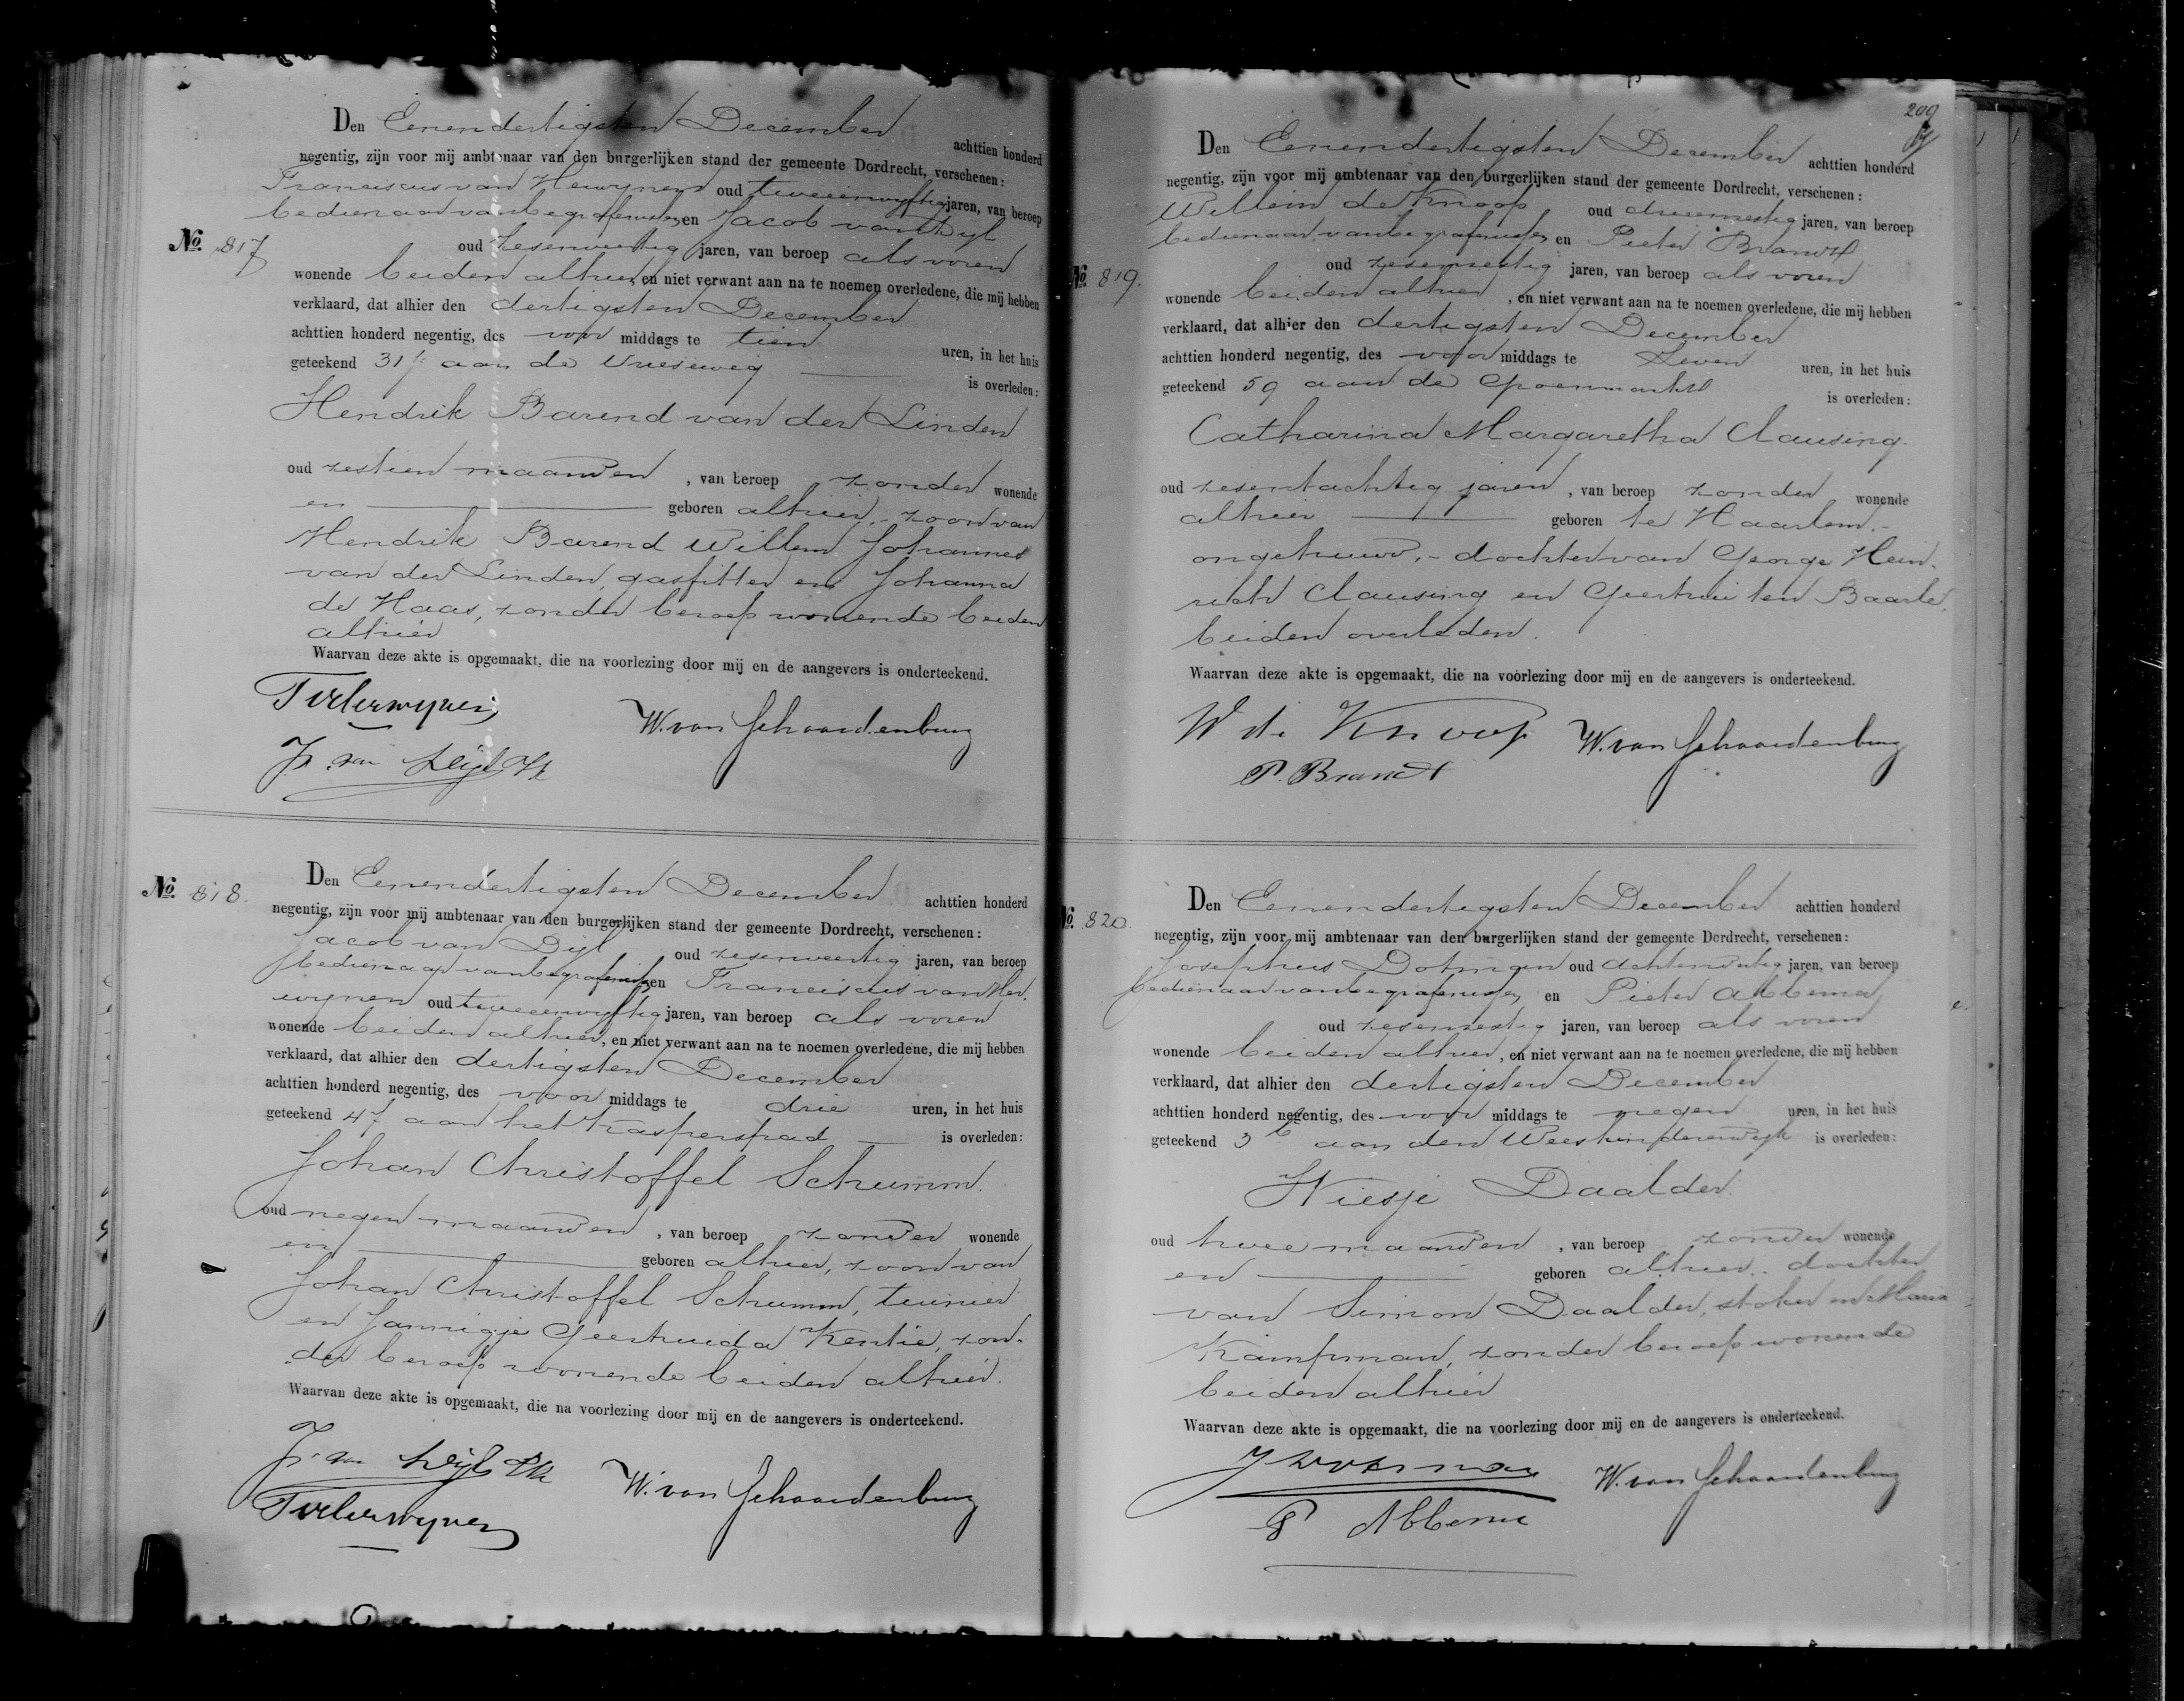 Den Eenendertigsten December achttien honderd
negentig, zijn voor mij ambtenaar van den burgerlijken stand der gemeente Dordrecht, verschenen:
Franciscus van Herwijnen oud tweeenvijftig jaren, van beroep
bedienaar van begrafenissen, en Jacob van Dijl
No. 817
oud zesenveertig jaren, van beroep als voren
wonende beiden alhier, en niet verwant aan na te noemen overledene, die mij hebben
verklaard, dat alhier den dertigsten December
achttien honderd negentig, des voor middags te tien uren, in het huis
geteekend 31 aan de Vrieseweg is overleden:
Hendrik Barend van der Linden
oud zestien maanden, van beroep zonder wonende
en geboren alhier, zoon van
Hendrik Barend Willem Johannes
van der Linden, gasfitter en Johanna
de Haas, zonder beroep wonende beiden
alhier
Waarvan deze akte is opgemaakt, die na voorlezing door mij en de aangevers is onderteekend.
FvHerwynen
W. van Schaardenburg
Jb van Dijl
No. 818.
Den Eenendertigsten December achttien honderd
negentig, zijn voor mij ambtenaar van den burgerlijken stand der gemeente Dordrecht, verschenen:
Jacob van Dijl oud zesenveertig jaren, van beroep
bedienaar van begrafenissen, en Franciscus van Her-
wijnen oud tweeenvijftig jaren, van beroep als voren
wonende beiden alhier, en niet verwant aan na te noemen overledene, die mij hebben
verklaard, dat alhier den dertigsten December
achttien honderd negentig, des voor middags te drie uren, in het huis
geteekend 47 aan het Kasperspad is overleden:
Johan Christoffel Schumm.
oud negen maanden, van beroep zonder wonende
en geboren alhier, zoon van
Johan Christoffel Schumm, tuinier
en Jannigje Geertruida Kentie, zon-
der beroep wonende beiden alhier.
Waarvan deze akte is opgemaakt, die na voorlezing door mij en de aangevers is onderteekend.
Jb van Dijl
W. van Schaardenburg
FvHerwynen
209
Den Eenendertigsten December achttien honderd
negentig, zijn voor mij ambtenaar van den burgerlijken stand der gemeente Dordrecht, verschenen:
Willem de Knoop oud drieenzestig jaren, van beroep
bedienaar van begrafenissen, en Pieter Brandt
No. 819.
oud zesenzestig jaren, van beroep als voren
wonende beiden alhier, en niet verwant aan na te noemen overledene, die mij hebben
verklaard, dat alhier den dertigsten December
achttien honderd negentig, des voor middags te zeven uren, in het huis
geteekend 59 aan de Groenmarkt is overleden:
Catharina Margaretha Clausing.
oud zesentachtig jaren, van beroep zonder wonende
alhier geboren te Haarlem.-
ongehuwd,- dochter van George Hein-
rich Clausing en Geertrui ten Baarle,
beiden overleden.
Waarvan deze akte is opgemaakt, die na voorlezing door mij en de aangevers is onderteekend.
W de Knoop
W. van Schaardenburg
P. Brandt
Den Eenendertigsten December achttien honderd
No. 820.
negentig, zijn voor mij ambtenaar van den burgerlijken stand der gemeente Dordrecht, verschenen:
Josephus oud jaren, van beroep
bedienaar van begrafenissen, en Pieter Abbema
oud zesenzestig jaren, van beroep als voren
wonende beiden alhier, en niet verwant aan na te noemen overledene, die mij hebben
verklaard, dat alhier den dertigsten December
achttien honderd negentig, des voor middags te negen uren, in het huis
geteekend 3 aan den Weeskinderendijk is overleden:
Niesje Daalder.
oud twee maanden, van beroep zonder wonende
en geboren alhier. dochter
van Simon Daalder, stoker en Maria
Kampman, zonder beroep wonende
beiden alhier
Waarvan deze akte is opgemaakt, die na voorlezing door mij en de aangevers is onderteekend.
W. van Schaardenburg
P Abbema